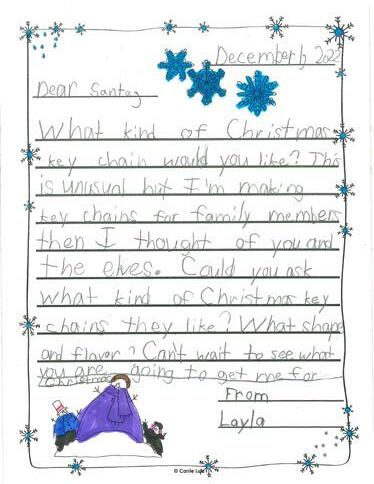 December 1, 2022
Dear Santa,
What kind of Christmas
key chain would you like? This
is unusual but I'm making
key chains for family members
then I thought of you and
the elves. Could you ask
what kind of Christmas key
chains they like? What shape
and flavor? Can't wait to see what
you are going to get me for
Christmas
From
Layla
© Carrie Lutz